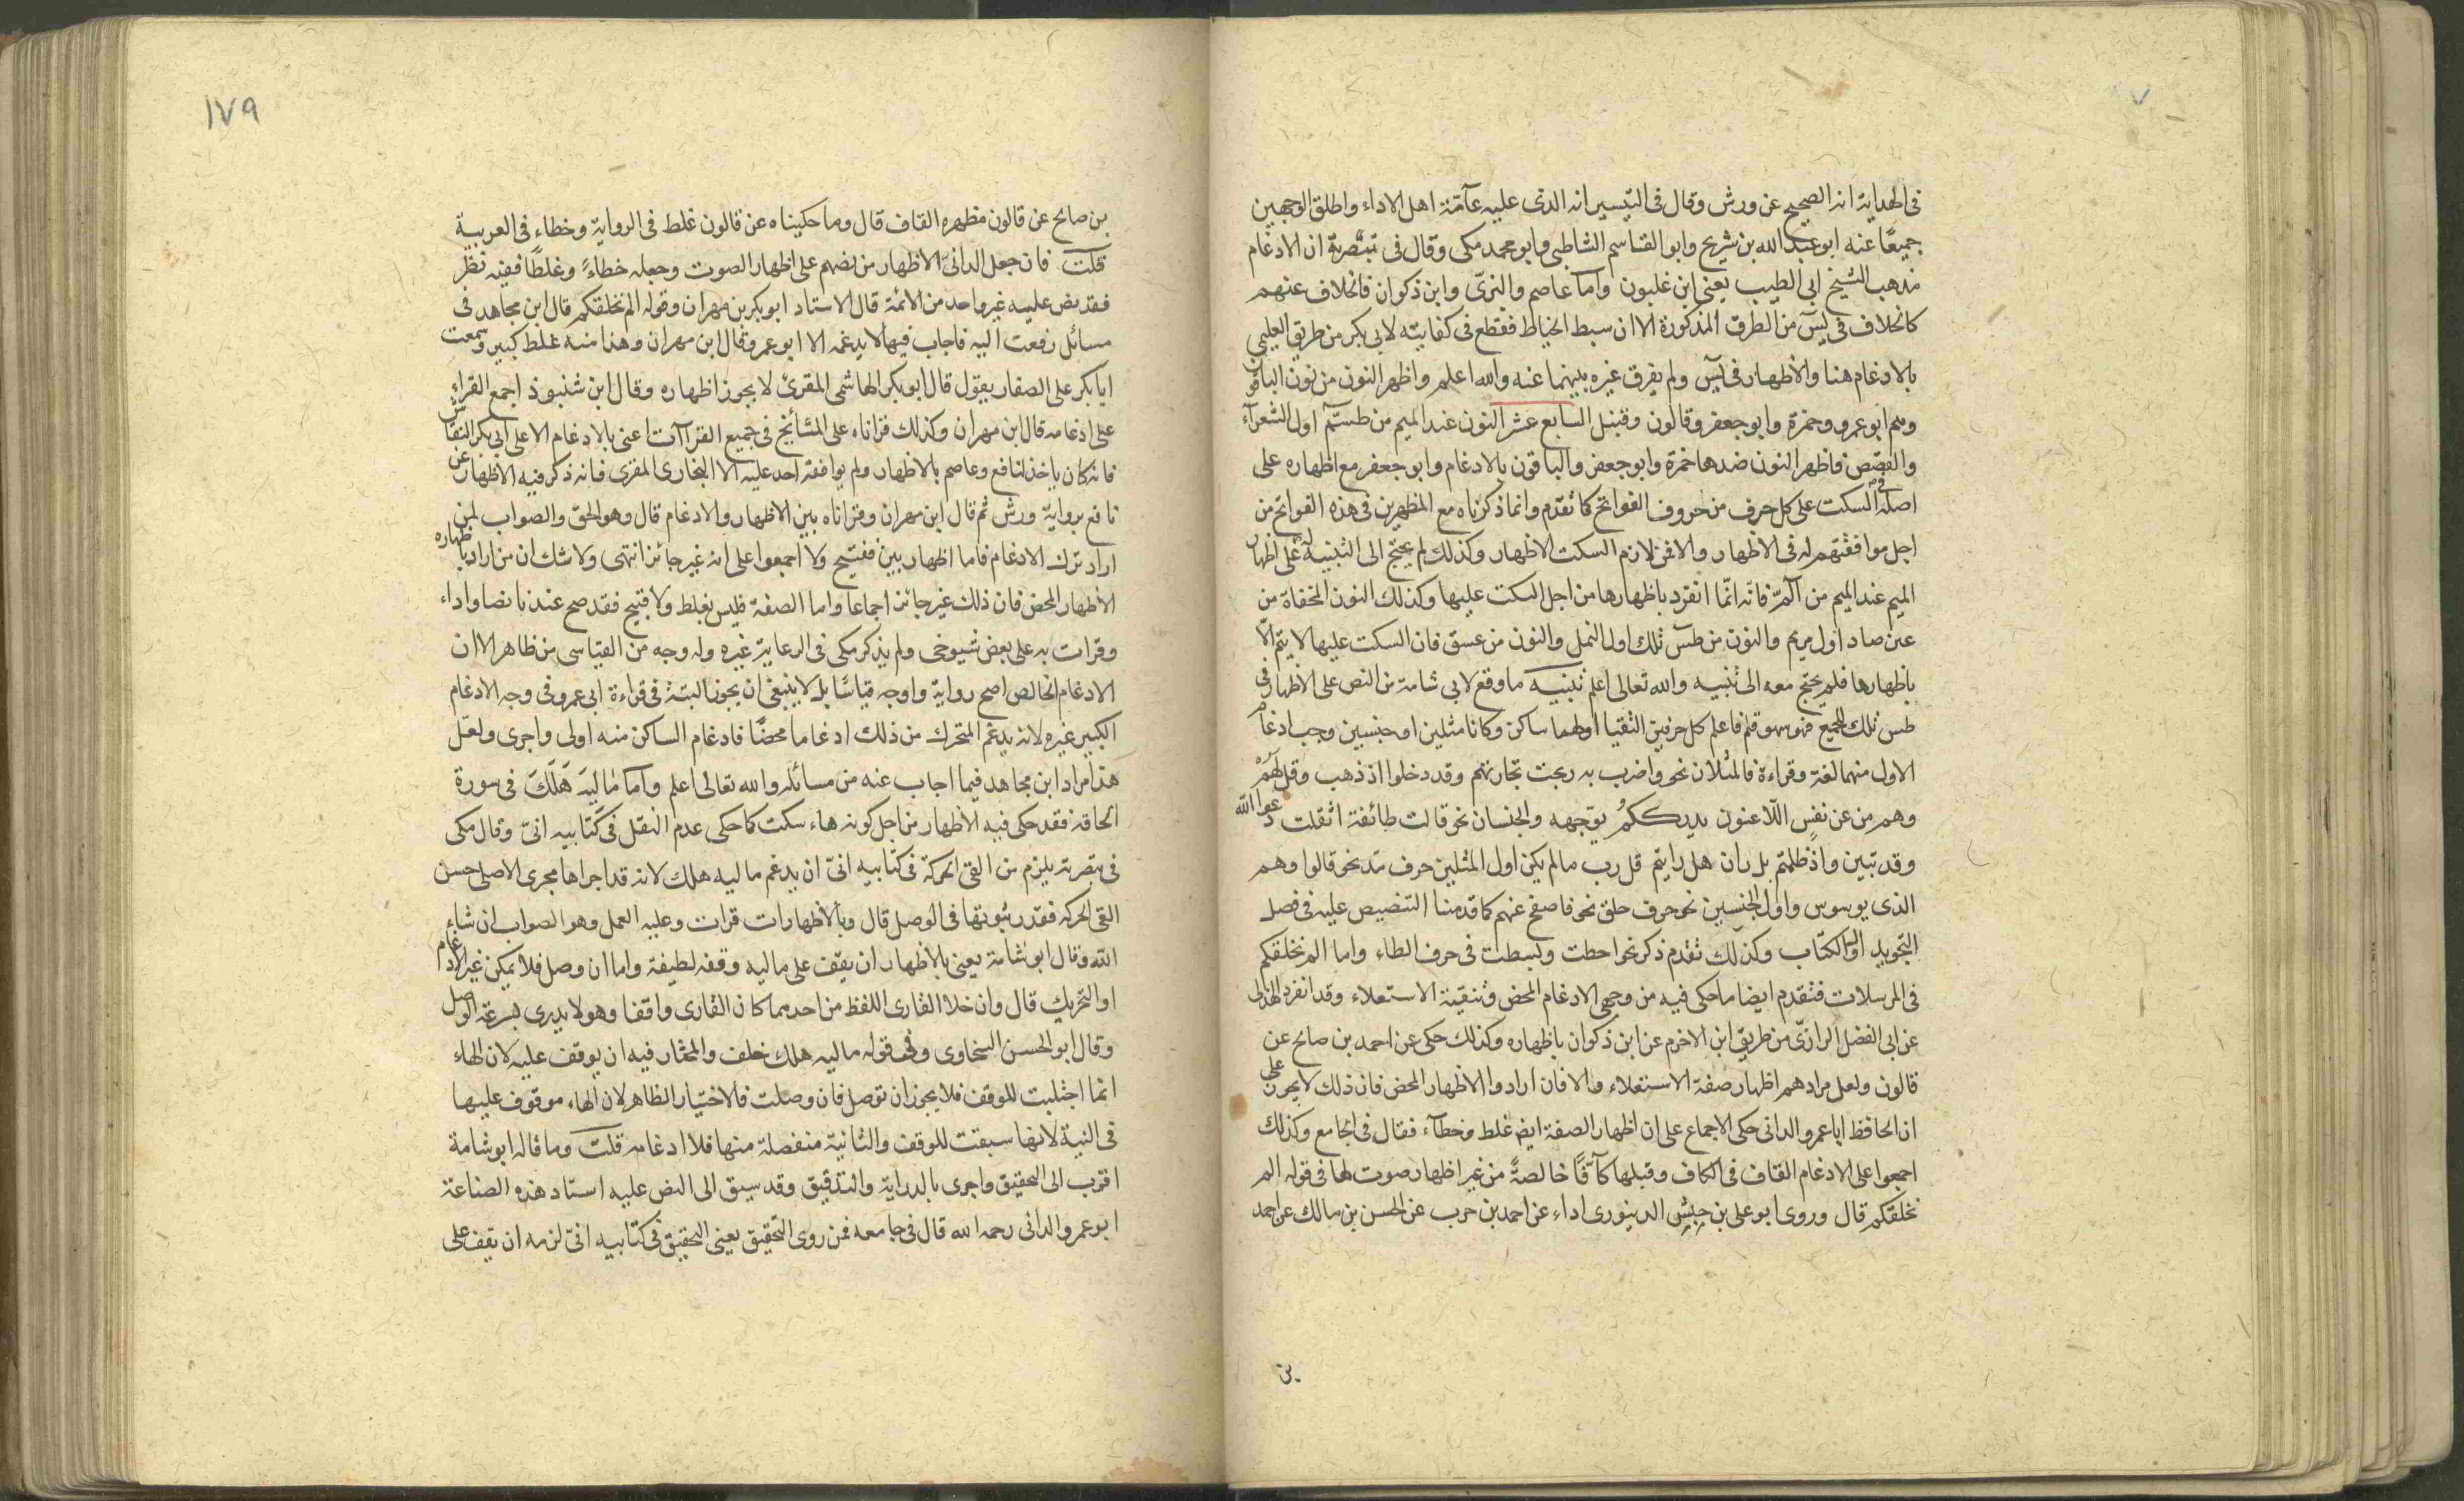 في الهداية انه الصحيح عن ورش وقال في التيسير انه الذى عليه عآمّة اهل الاداء واطلق الوجهين
جميعًا عنه ابوعبد الله بن شريح وابو القاسم الشاطبى وابو محمد مكى وقال فى تبصرته ان الادغام
مذهب الشيخ ابى الطيب يعنى ابن غلبون واما عاصم والبزّى وابن ذكوان فالخلاف عنهم
كالخلاف فى يسۤ من الطرق المذكورة الا ان سبط الخياط فقطع فى كفايته لابى بكر من طريق العليمى
بالادغام هنا والاظهار فى يسۤ ولم يفرق غيره بينهما عنه والله اعلم واظهر النون من نون الباقون
وهم ابو عمرو وحمزة وابو جعفر وقالون وقنبل السابع عشر النون عند الميم من طسمۤ اول الشعرآء
والقصص فاظهر النون ضدها حمزة وابو جعفر والباقون بالادغام وابو جعفر مع اظهاره على
اصله فى السكت على كل حرف من حروف الفواتح كما تقدم وانما ذكرناه مع المظهرين فى هذه الفواتح من
اجل موافقتهم له فى الاظهار والا فمن لازم السكت الاظهار وكذلك لم يحتج الى التنبيه له على اظهار
الميم عند الميم من آلمۤرۤ فانّه انّما انفرد باظهارها من اجل السكت عليها وكذلك النون المخفاة من
عين صاد اول مريم والنون من طسۤ تلك اول النمل والنون من عسق فان السكت عليها لا يتم الّا
باظهارها فلم يحتج معه الى تنبيه والله تعالى اعلم تنبيه ما وقع لابى شامة من النص على الاظهار فى
طسۤ تلك للجميع فهو سهو قلم فاعلم كل حرفين التقيا اولهما ساكن وكانا مثلين او جنسين وجب ادغام
الاول منهما لغة وقراءة فالمثلان نحو واضرب به ربحت تجارتهم وقد دخلوا اذ ذهب وقل لهم
وهم من عن نفس اللّاعنون يدرككم يوجهه والجنسان نحو قالت طائفة اثقلت دعوا الله
وقد تبين واذ ظلمتم بل ران هل رايتم قل رب ما لم يكن اول المثلين حرف مد نحو قالوا وهم
الذى يوسوس واول الجنسين نحو حرف حلق نحو فاصفح عنهم كما قدمنا التنصيص عليه فى فصل
التجويد اول الكتاب وكذلك تقدم ذكر نحو احطت وبسطت فى حرف الطاء واما الم نخلقكم
فى المرسلات فتقدم ايضا ما حكى فيه من وجهى الادغام المحض وتنقية الاستعلاء وقد انفرد الهذلى
عن ابى الفضل الرازىّ من طريق ابن الاخرم عن ابن ذكوان باظهاره وكذلك حكى عن احمد بن صالح عن
قالون ولعل مرادهم اظهار صفة الاستعلاء والا فان ارادوا الاظهار المحض فان ذلك لا يجوز على
ان الحافظ ابا عمرو الدانى حكى الاجماع على ان اظهار الصفة ايضا غلط وخطآء فقال فى الجامع وكذلك
اجمعوا على الادغام القاف فى الكاف وقبلها كآفًا خالصةً من غير اظهار صوت لها فى قوله الم
نخلقكم قال وروى ابو على بن حبش الدينورى اداء عن احمد بن حرب عن الحسن بن مالك عن احمد
١٧٩
بن صالح عن قالون مظهره القاف قال وما حكيناه عن قالون غلط فى الرواية وخطاء فى العربية
قلت فان جعل الدانىّ الاظهار من نصهم على اظهار الصوت وجعله خطاءً وغلطًا ففيه نظر
فقد نص عليه غير واحد من الائمة قال الاستاد ابو بكر بن مهران وقوله الم نخلقكم قال ابن مجاهد فى
مسائل رفعت اليه فاجاب فيها لا يدغمه الا ابو عمرو قال ابن مهران وهذا منه غلط كبير وسمعت
ابا بكر على الصفار يقول قال ابو بكر الهاشمى المقرئ لا يجوز اظهاره وقال ابن شنبوذ اجمع القراء
على ادغامه قال ابن مهران وكذلك قراناه على المشائخ فى جميع القراآت اعنى بالادغام الا على ابى بكر النقاش
فانه كان ياخذ لنافع وعاصم بالاظهار ولم يوافقه احد عليه الا البخارى المقرى فانه ذكر فيه الاظهار عن
نافع برواية ورش ثم قال ابن مهران وقراناه بين الاظهار والادغام قال وهو الحق والصواب لمن
اراد ترك الادغام فاما اظهار بين فقبيح ولا اجمعوا على انه غير جائز انتهى ولا شك ان من اراد باظهاره
الاظهار المحض فان ذلك غير جائز اجماعا واما الصفة فليس بغلط ولا قبيح فقد صح عندنا نصا واداء
وقرات به على بعض شيوخى ولم يذكر مكى فى الرعاية غيره وله وجه من القياسى من ظاهر الا ان
الادغام الخالص اصح رواية واوجه قياسًا بل لا ينبغى ان يجوز البتة فى قراءة ابى عمرو فى وجه الادغام
الكبير غيره لانه يدغم المتحرك من ذلك ادغاما محضًا فادغام الساكن منه اولى واجرى ولعل
هذا مراد ابن مجاهد فيما اجاب عنه من مسائله والله تعالى اعلم واما مٰالِيَه هَلَكَ فى سورة
الحاقه فقد حكى فيه الاظهار من اجل كونه هاء سكت كما حكى عدم النقل فى كتابيه انىّ وقال مكى
فى تبصرته يلزم من القى الحركة فى كتابيه انىّ ان يدغم ماليه هلك لانه قد اجراها مجرى الاصلى حسن
القى الحركه فقدر ثبوتها فى الوصل قال وبالاظهارات قرات وعليه العمل وهو الصواب ان شاء
الله وقال ابو شامة يعنى بالاظهار ان يقف على ماليه وقفه لطيفة واما ان وصل فلا يمكن غير الادغام
او التحريك قال وان خلا القارى اللفظ من احدهما كان القارى واقفا وهو لا يدرى بسرعة الوصل
وقال ابو الحسن السخاوى وفى قوله ماليه هلك خلف والمختار فيه ان يوقف عليه لان الهاء
انما اجتلبت للوقف فلا يجوز ان توصل فان وصلت فالاختيار الظاهر لان الهاء موقوف عليها
فى النية لانها سيقت للوقف والثانية منفصلة منها فلا ادغامه قلت وما قاله ابو شامة
اقرب الى التحقيق واجرى بالدراية والتدقيق وقد سبق الى النص عليه استاد هذه الصناعة
ابو عمرو الدانى رحمه الله قال فى جامعه فمن روى التّحقيق يعنى التحقيق فى كتابيه انىّ لزمه ان يقف على